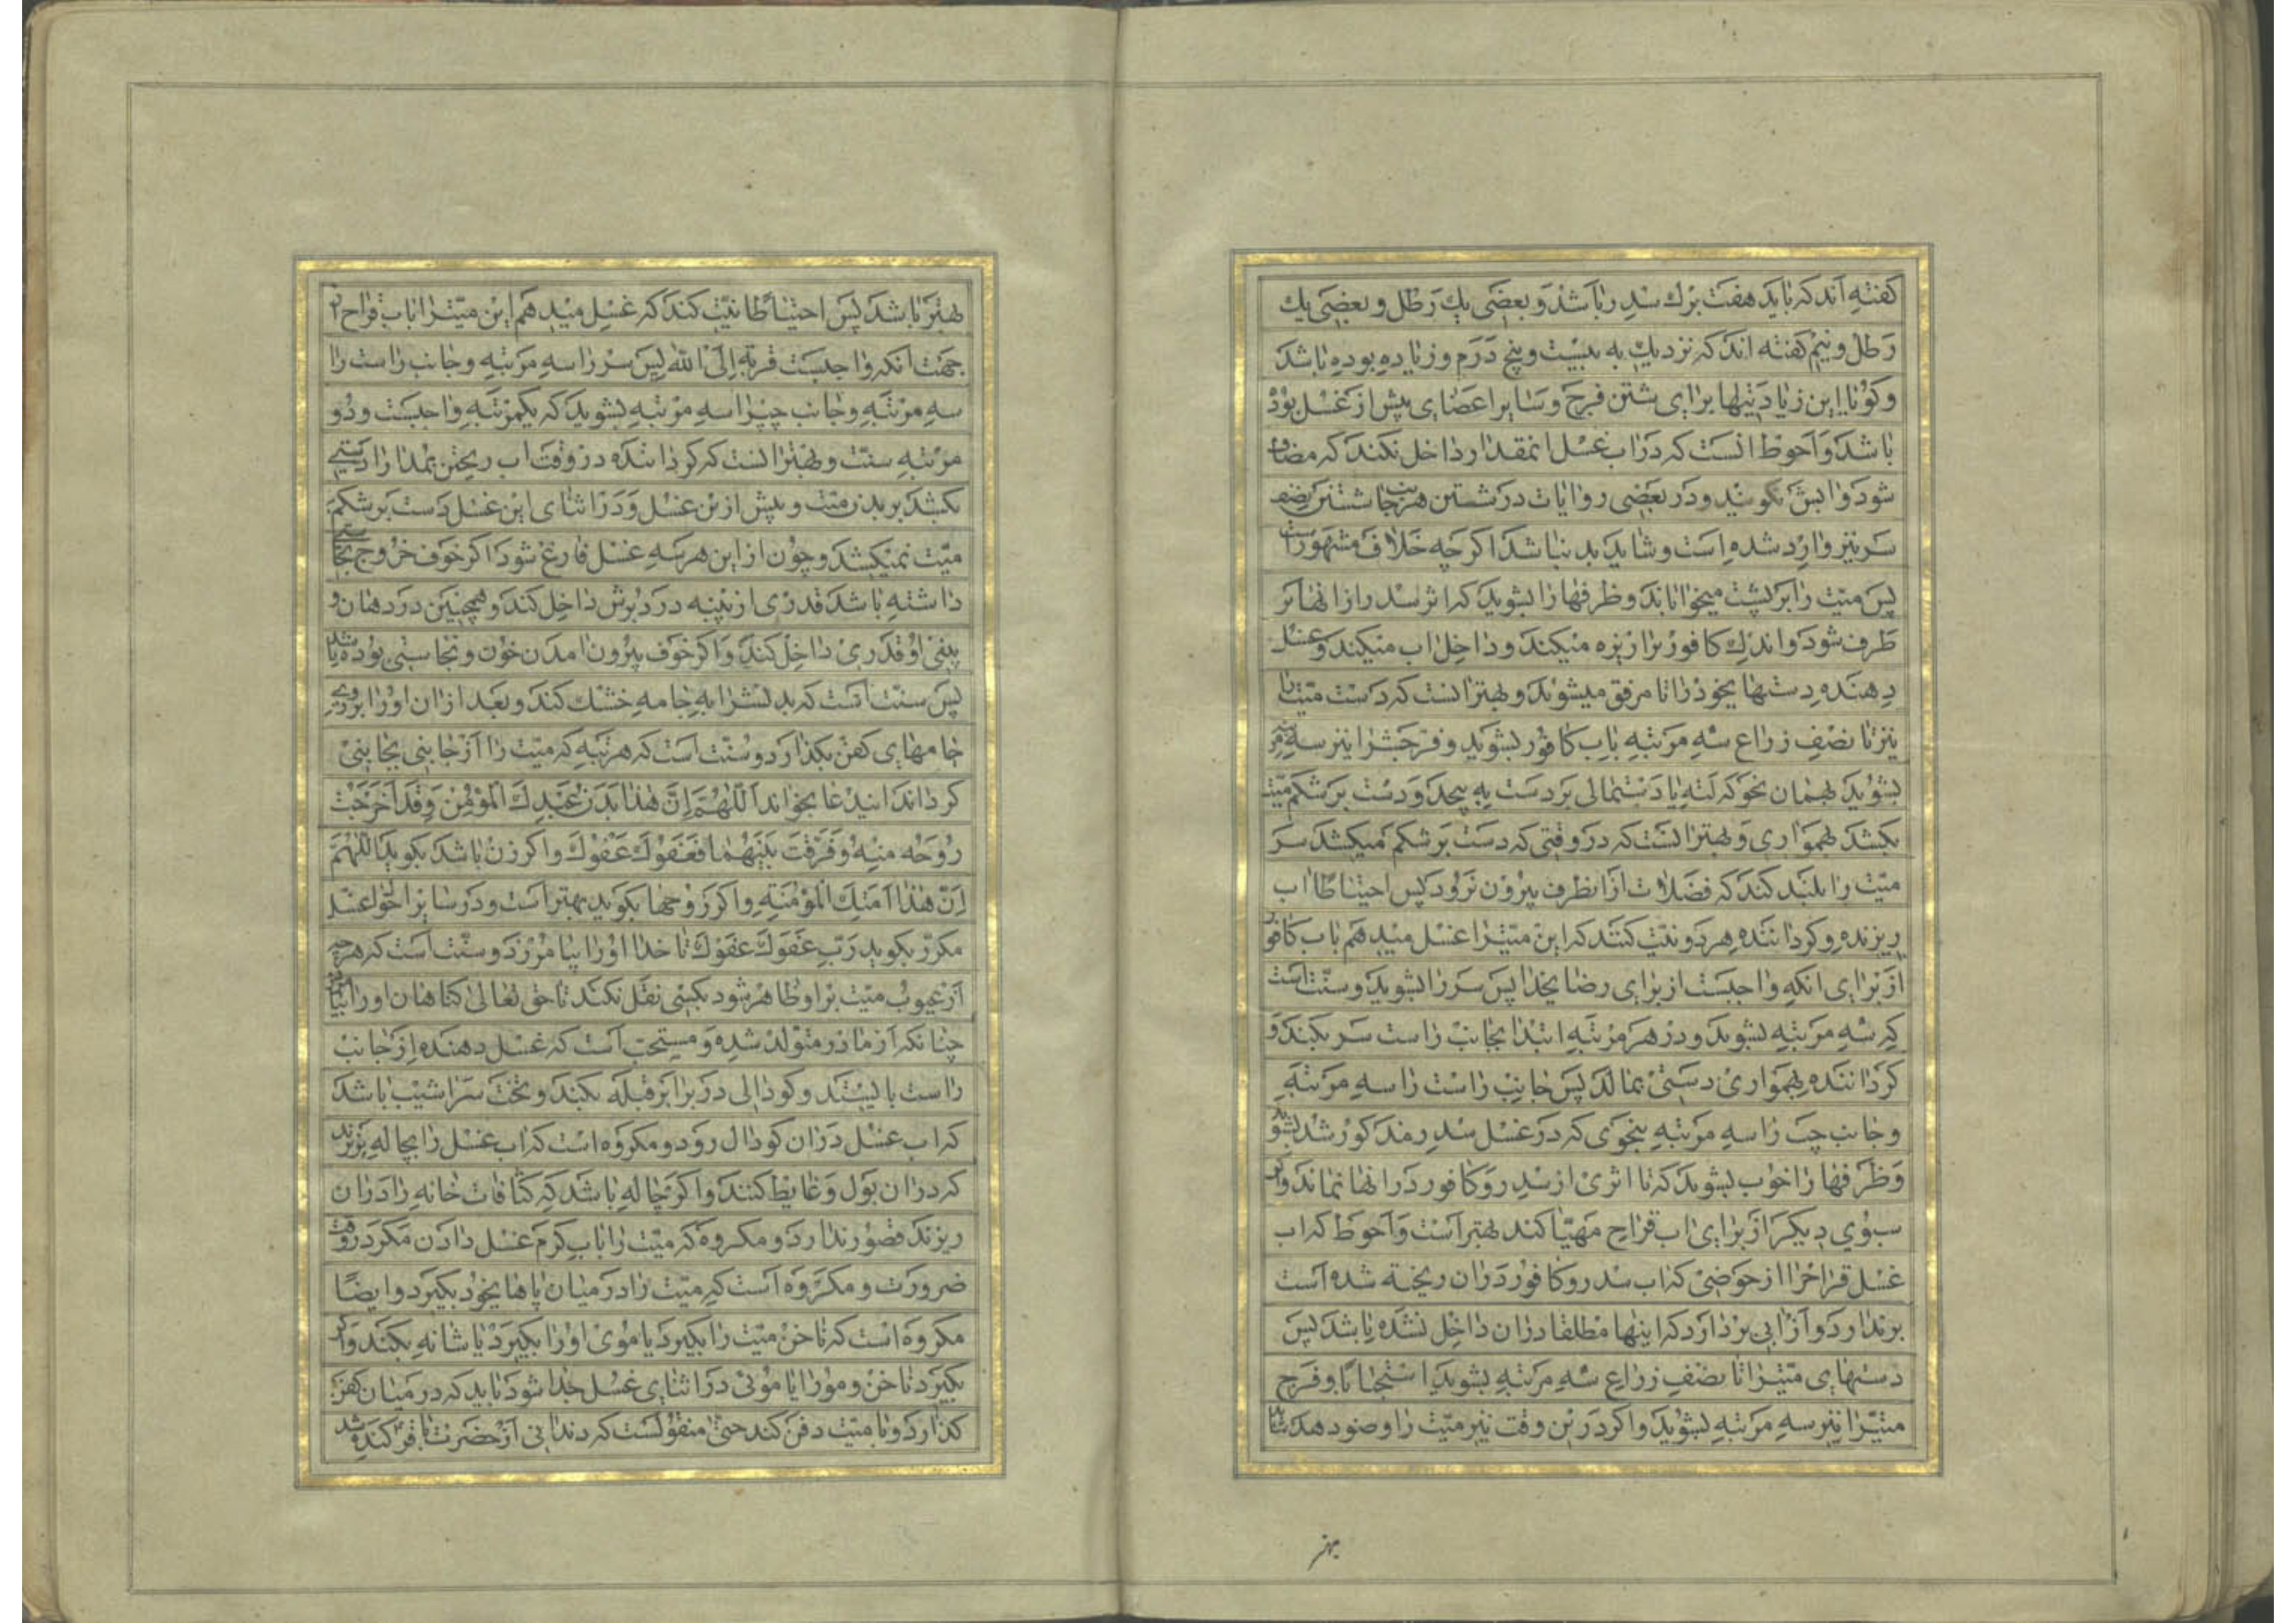 گفته اند که باید هفت برك سدر باشد و بعضی یك رطل و بعضی یك
رطل و نیم گفته اند که نزدیك به بیست و پنج درم و زیاده بوده باشد
و کویا این زیادتیها برای شستن فرج و سایر اعضای پیش از غسل بوده
باشد و احوط انست که در اب غسل انمقدار داخل نکنند که مضاف
شود و ابش نکویند و در بعضی روایات در شستن هر جانب شستن نصف
سر نیز وارد شده است و شاید بد نباشد اکر چه خلاف مشهور است
پس میت را بر پشت میخواباند و ظرفها را بشوید که اثر سدر از انها بر
طرف شود و اندك کافور را ریزه میکند و داخل اب میکند و غسل
دهنده دستهای خود را تا مرفق میشوید و بهتر انست که دست میت را
نیز تا نصف زراع سه مرتبه باب کافور بشوید و فرجش را نیز سه مرتبه
بشوید بهمان نحو که لته یا دستمالی بر دست به پیچد و دست بر شکم میت
بکشد بهمواری و بهتر انست که در وقتی که دست بر شکم میکشد سر
میت را بلند کند که فضلات از انطرف بیرون نرود پس احتیاطا اب
ریزنده و کرداننده هر دو نیت کنند که این میترا غسل میدهم باب کافور
از برای انکه واجبست از برای رضای خدا پس سر را بشوید و سنت است
که سه مرتبه بشوید و در هر مرتبه ابتدا بجانب راست سر بکند و
کرداننده بهمواری دستی بمالد پس جانب راست را سه مرتبه
و جانب چپ را سه مرتبه بنحوی که در غسل سدر مذکور شد بشوید
و ظرفها را خوب بشوید که تا اثری از سدر و کافور در انها نماند و اکر
سبوی دیکر از برای اب قراح مهیا کند بهتر است و احوط که اب
غسل قراح را از حوضی که اب سدر و کافور در ان ریخته شده است
برندارد و از ابی بردارد که اینها مطلقا در ان داخل نشده باشد پس
دستهای میترا تا نصف زراع سه مرتبه بشوید استحبابا و فرج
میترا نیز سه مرتبه بشوید و اکر در این وقت نیز میت را وضو دهد شاید
بهتر
بهتر باشد پس احتیاطا نیت کند که غسل میدهم این میترا باب قراح از
جهت انکه واجبست قربة الی الله پس سر را سه مرتبه و جانب راست را
سه مرتبه و جانب چپرا سه مرتبه بشوید که یکمرتبه واجبست و دو
مرتبه سنت و بهتر انست که کرداننده در وقت اب ریختن بمدارا دستی
بکشد بر بدن میت و پیش از این غسل و در اثنای این غسل دست بر شکم
میت نمیکشد و چون از این هر سه غسل فارغ شود اکر خوف خروج نجاستی
داشته باشد قدری از پنبه در دبرش داخل کند و همچنین در دهان و
بینی او قدری داخل کند و اکر خوف بیرون امدن خون و نجاستی بوده باشد
پس سنت است که بدنش را به جامه خشك کند و بعد از ان او را بر روی
جامهای کفن بکذارد و سنت است که هر مرتبه که میت را از جانبی بجانبی
کرداند ایندعا بخواند اللهم ان هذا بدن عبدك المؤمن و قد اخرجت
روحه منه و فرقت بینهما فعفوك عفوك و اکر زن باشد بکوید اللهم
ان هذا امتك المؤمنة و اکر زوجها بکوید بهتر است و در سایر احوال غسل
مکرر بکوید رب عفوك عفوك تا خدا او را بیامرزد و سنت است که هر چه
از عیوب میت بر او ظاهر شود بکسی نقل نکند تا حق تعالی کناهان او را بیامرزد
چنانکه از مادر متولد شده و مستحب است که غسل دهنده از جانب
راست بایستد و کودالی در برابر قبله بکند و تخت سراشیب باشد
که اب غسل در ان کودال رود و مکروه است که اب غسل را بچاله بریزند
که در ان بول و غایط کنند و اکر بچاله باشد که کثافات خانه را در ان
ریزند قصور ندارد و مکروه که میت را باب کرم غسل دادن مکر در وقت
ضرورت و مکروه است که میت را در میان پاهای خود بکیرد و ایضا
مکروه است که ناخن میت را بکیرد یا موی او را بکیرد یا شانه بکند و اکر
بکیرد ناخن و مو را یا موئی در اثنای غسل جدا شود باید که در میان کفن
کذارد و با میت دفن کند حتی منقولست که دندانی از حضرت باقر کنده شد